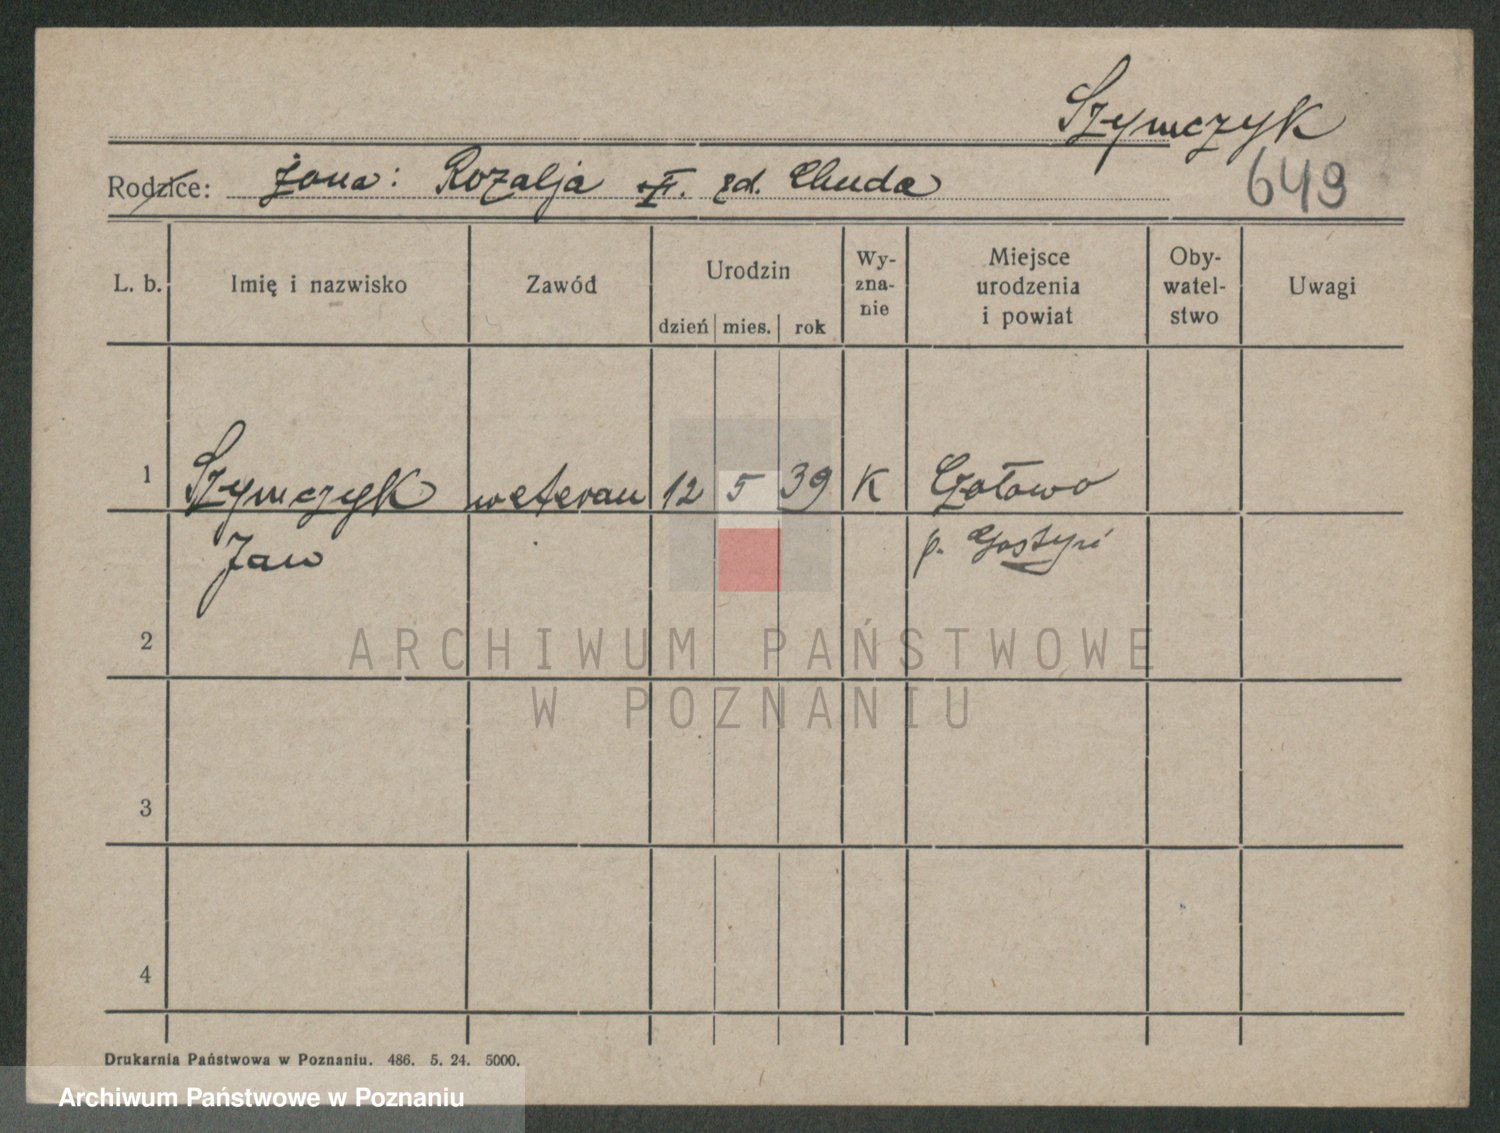 Szymczyk
Rodzice: żona: Rozalja zd. Chuda
649
L. b. Imię i nazwisko Zawód Urodzin dzień mies. rok Wy-zna-nie Miejsce urodzenia i powiat Oby-watel-stwo Uwagi
1 Szymczyk weteran 12 5 39 K Czołowo
Jan p. Gostyń
2
ARCHIWUM PAŃSTWOWE
W POZNANIU
3
4
Drukarnia Państwowa w Poznaniu. 486. 5. 24. 5000.
Archiwum Państwowe w Poznaniu